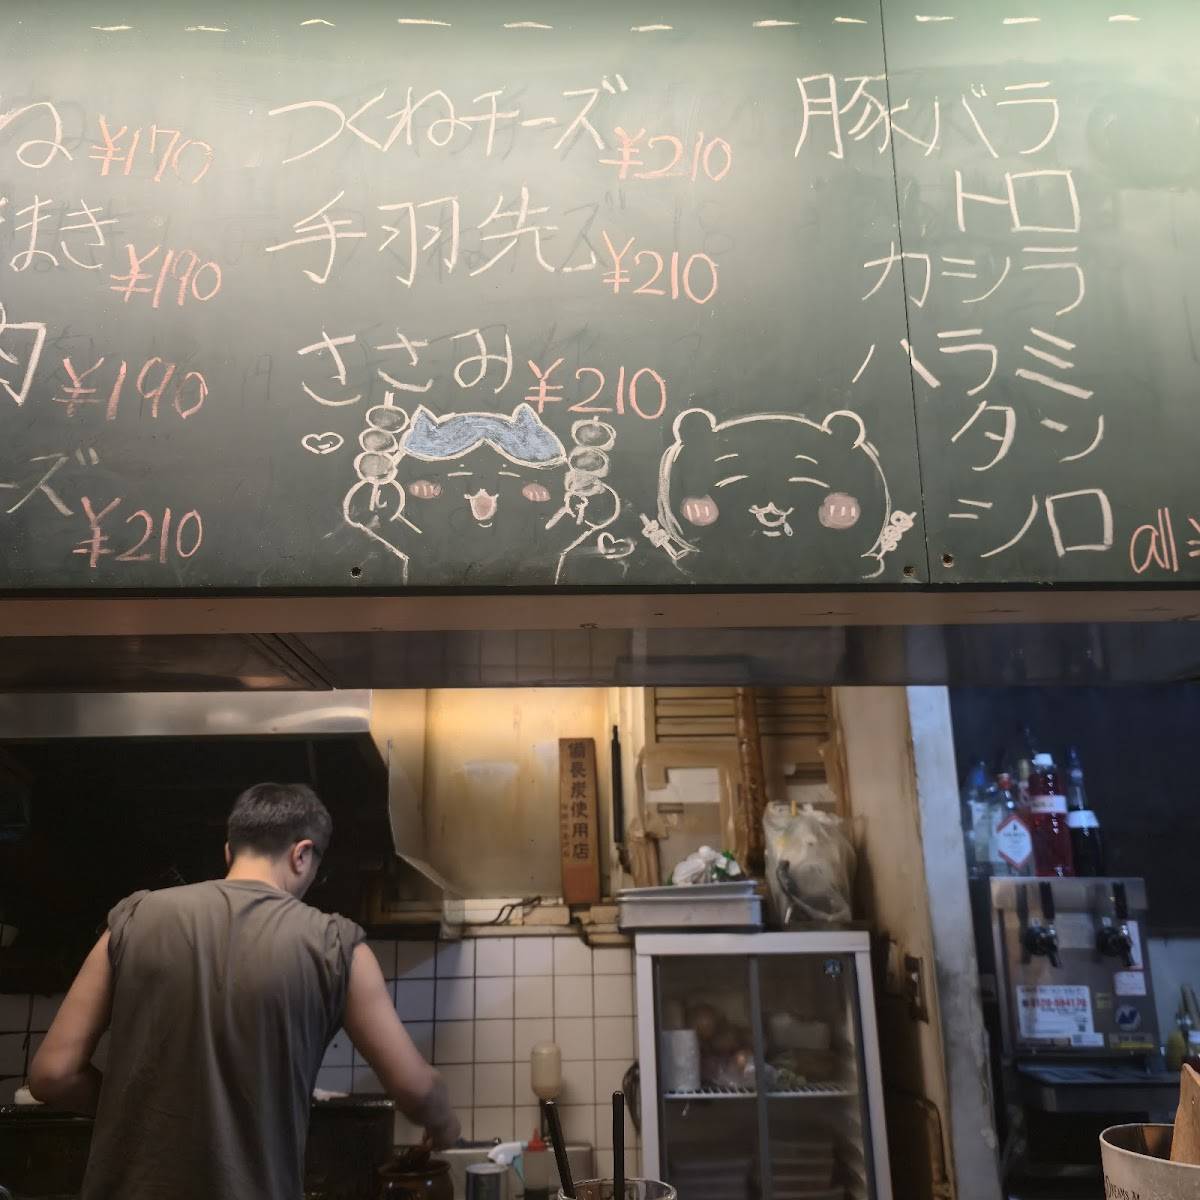 ね ¥170
まき ¥190
肉 ¥190
ーズ ¥210
つくねチーズ ¥210
手羽先 ¥210
ささみ ¥210
豚バラ
トロ
カシラ
ハラミ
タン
シロ
all ¥
備長炭使用店